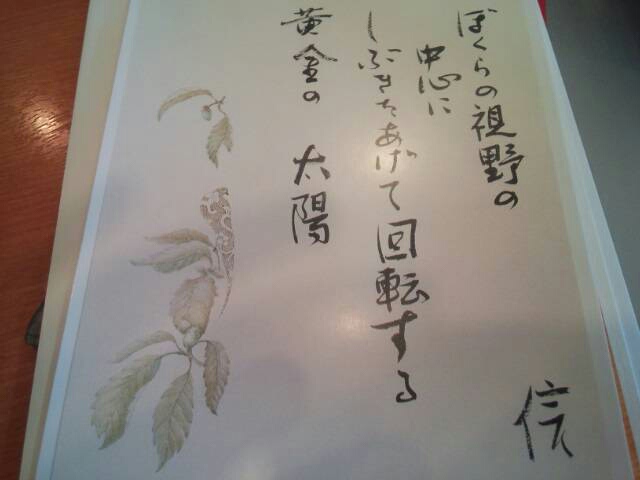 ぼくらの視野の
中心に
しぶきをあげて回転する
黄金の 太陽
信